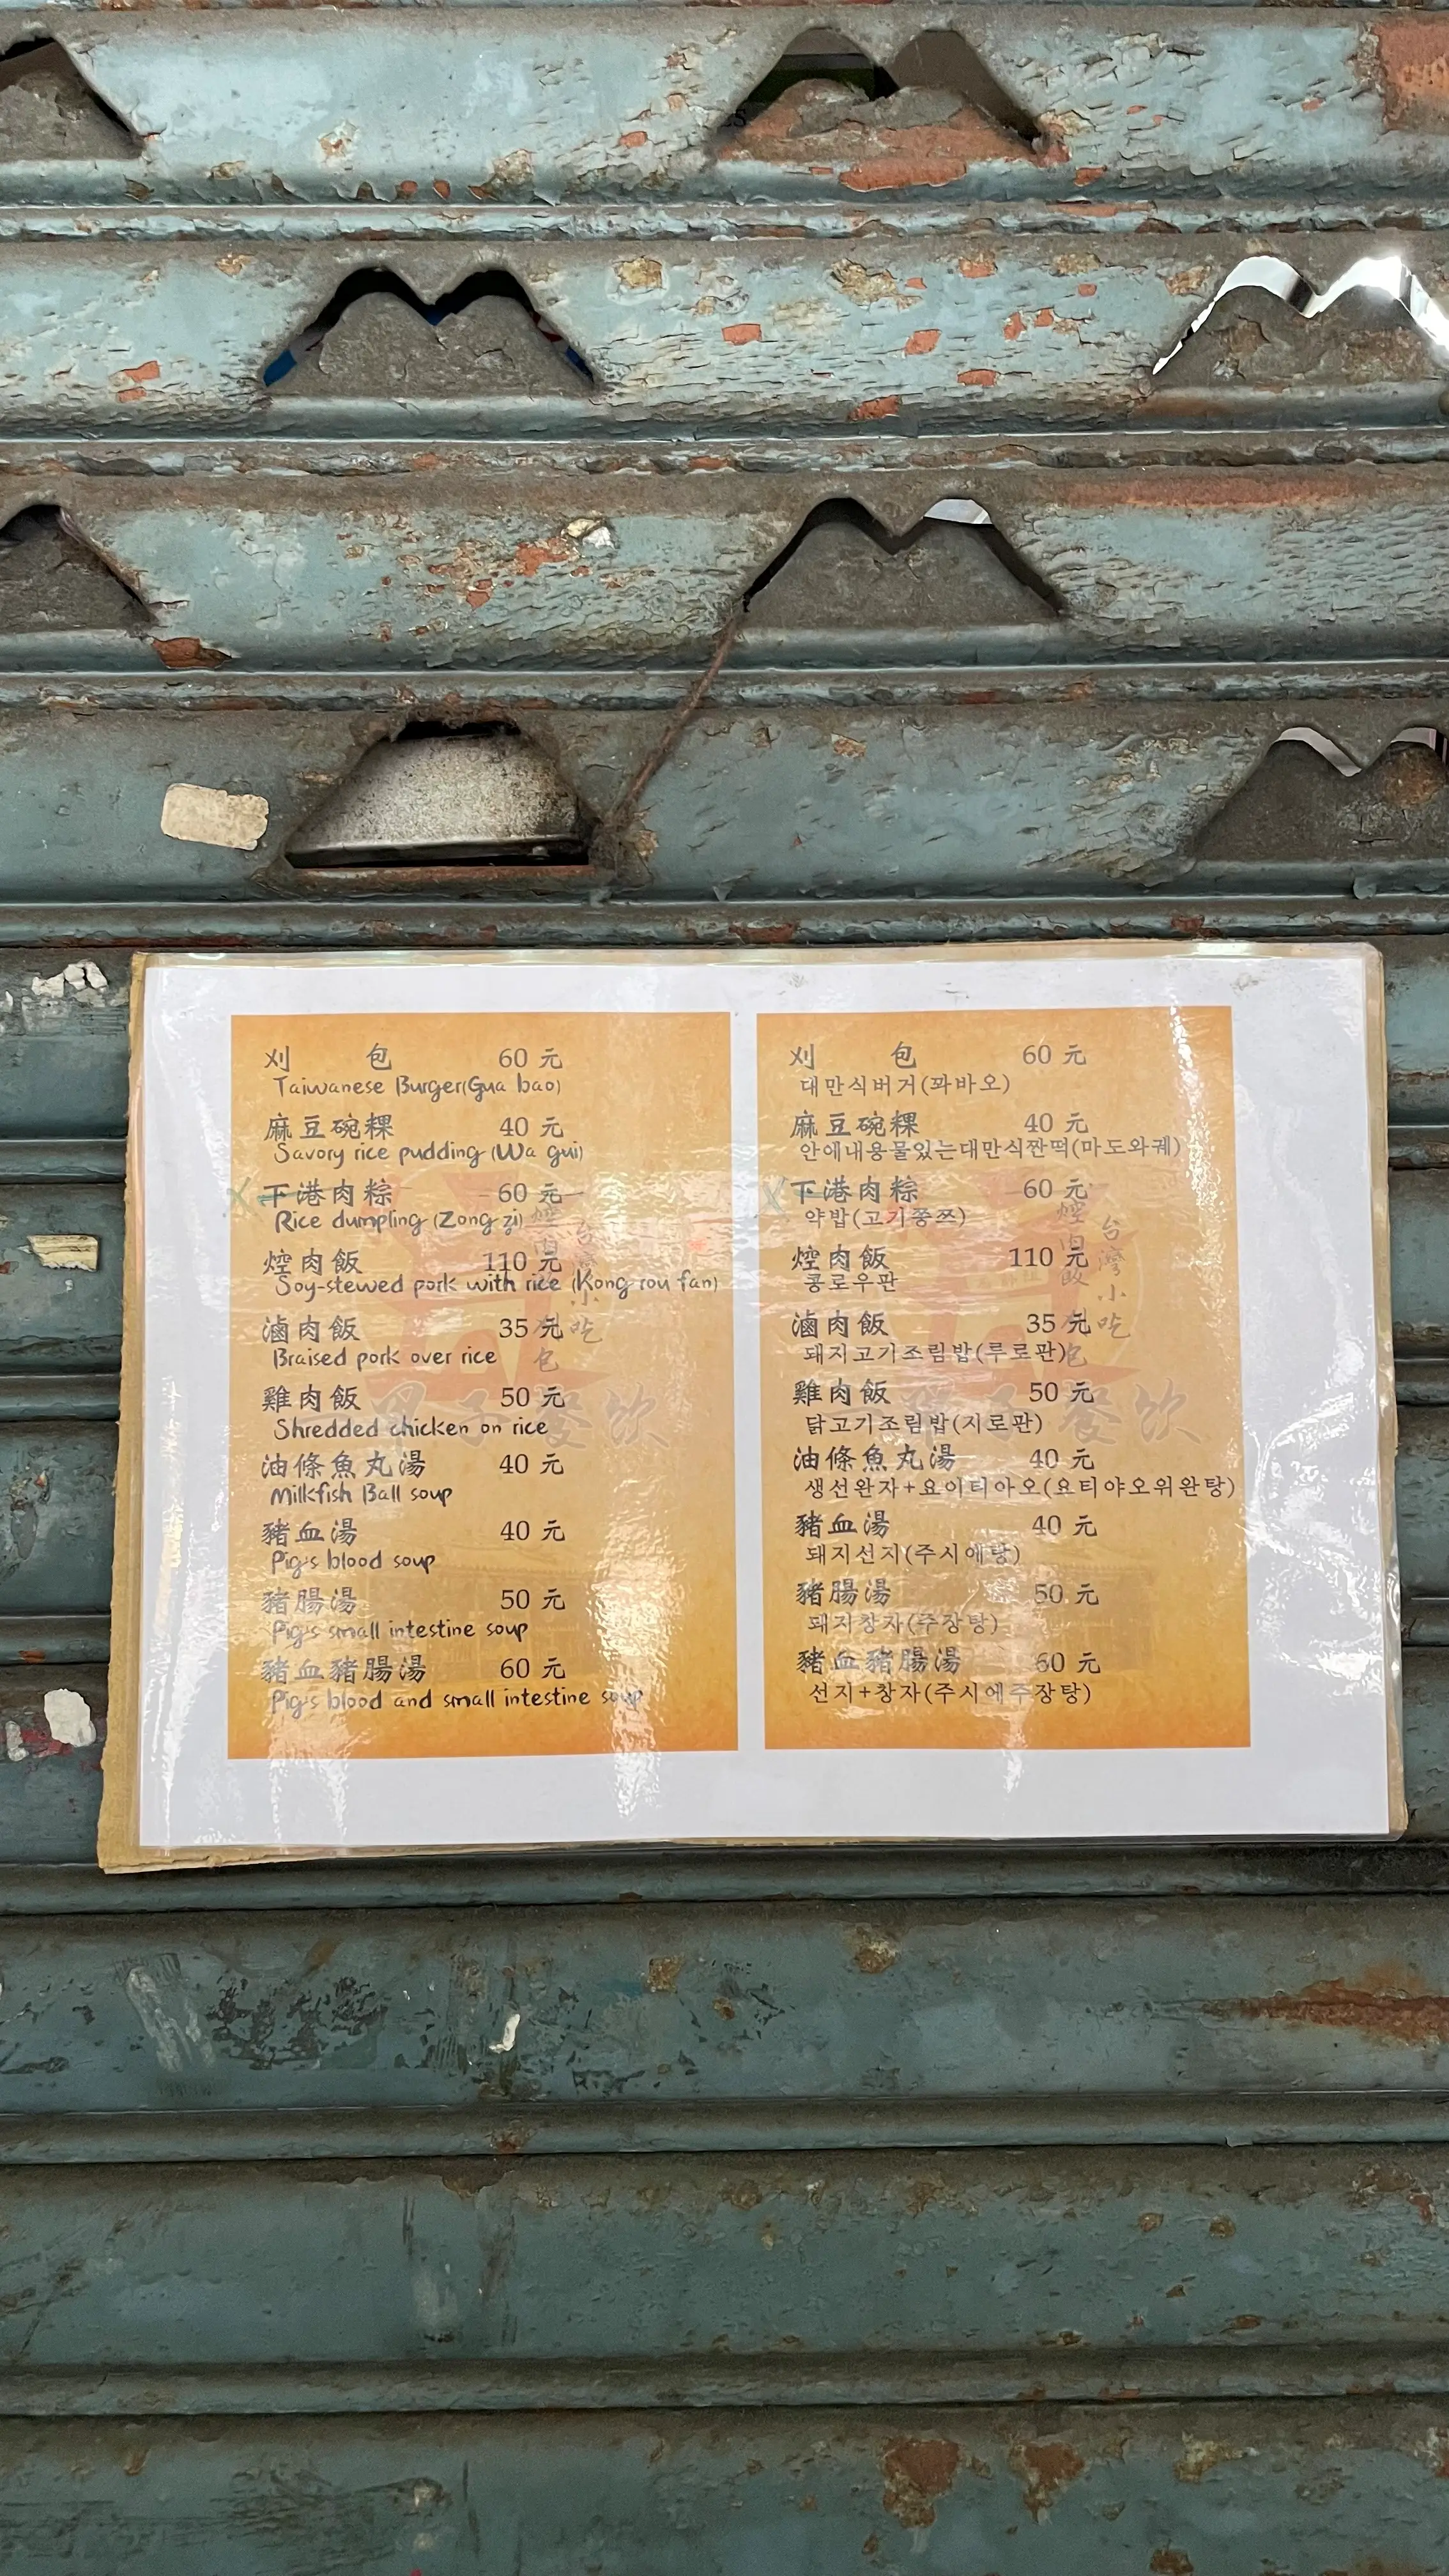 刈 包 60 元
Taiwanese Burger(Gua bao)
麻豆碗粿 40 元
Savory rice pudding (Wa gui)
下港肉粽 60 元
Rice dumpling (Zong zi)
焢肉飯 110 元
Soy-stewed pork with rice (Kong rou fan)
滷肉飯 35 元
Braised pork over rice
雞肉飯 50 元
Shredded chicken on rice
油條魚丸湯 40 元
Milkfish Ball soup
豬血湯 40 元
Pig's blood soup
豬腸湯 50 元
Pig's small intestine soup
豬血豬腸湯 60 元
Pig's blood and small intestine soup
刈 包 60 元
대만식버거(꽈바오)
麻豆碗粿 40 元
안에내용물있는대만식짠떡(마도와궤)
下港肉粽 60 元
약밥(고기쫑쯔)
焢肉飯 110 元
콩로우판
滷肉飯 35 元
돼지고기조림밥(루로판)
雞肉飯 50 元
닭고기조림밥(지로판)
油條魚丸湯 40 元
생선완자+요이티아오(요티야오위완탕)
豬血湯 40 元
돼지선지(주시에탕)
豬腸湯 50 元
돼지창자(주장탕)
豬血豬腸湯 60 元
선지+창자(주시에주장탕)
台灣小吃
餐飲